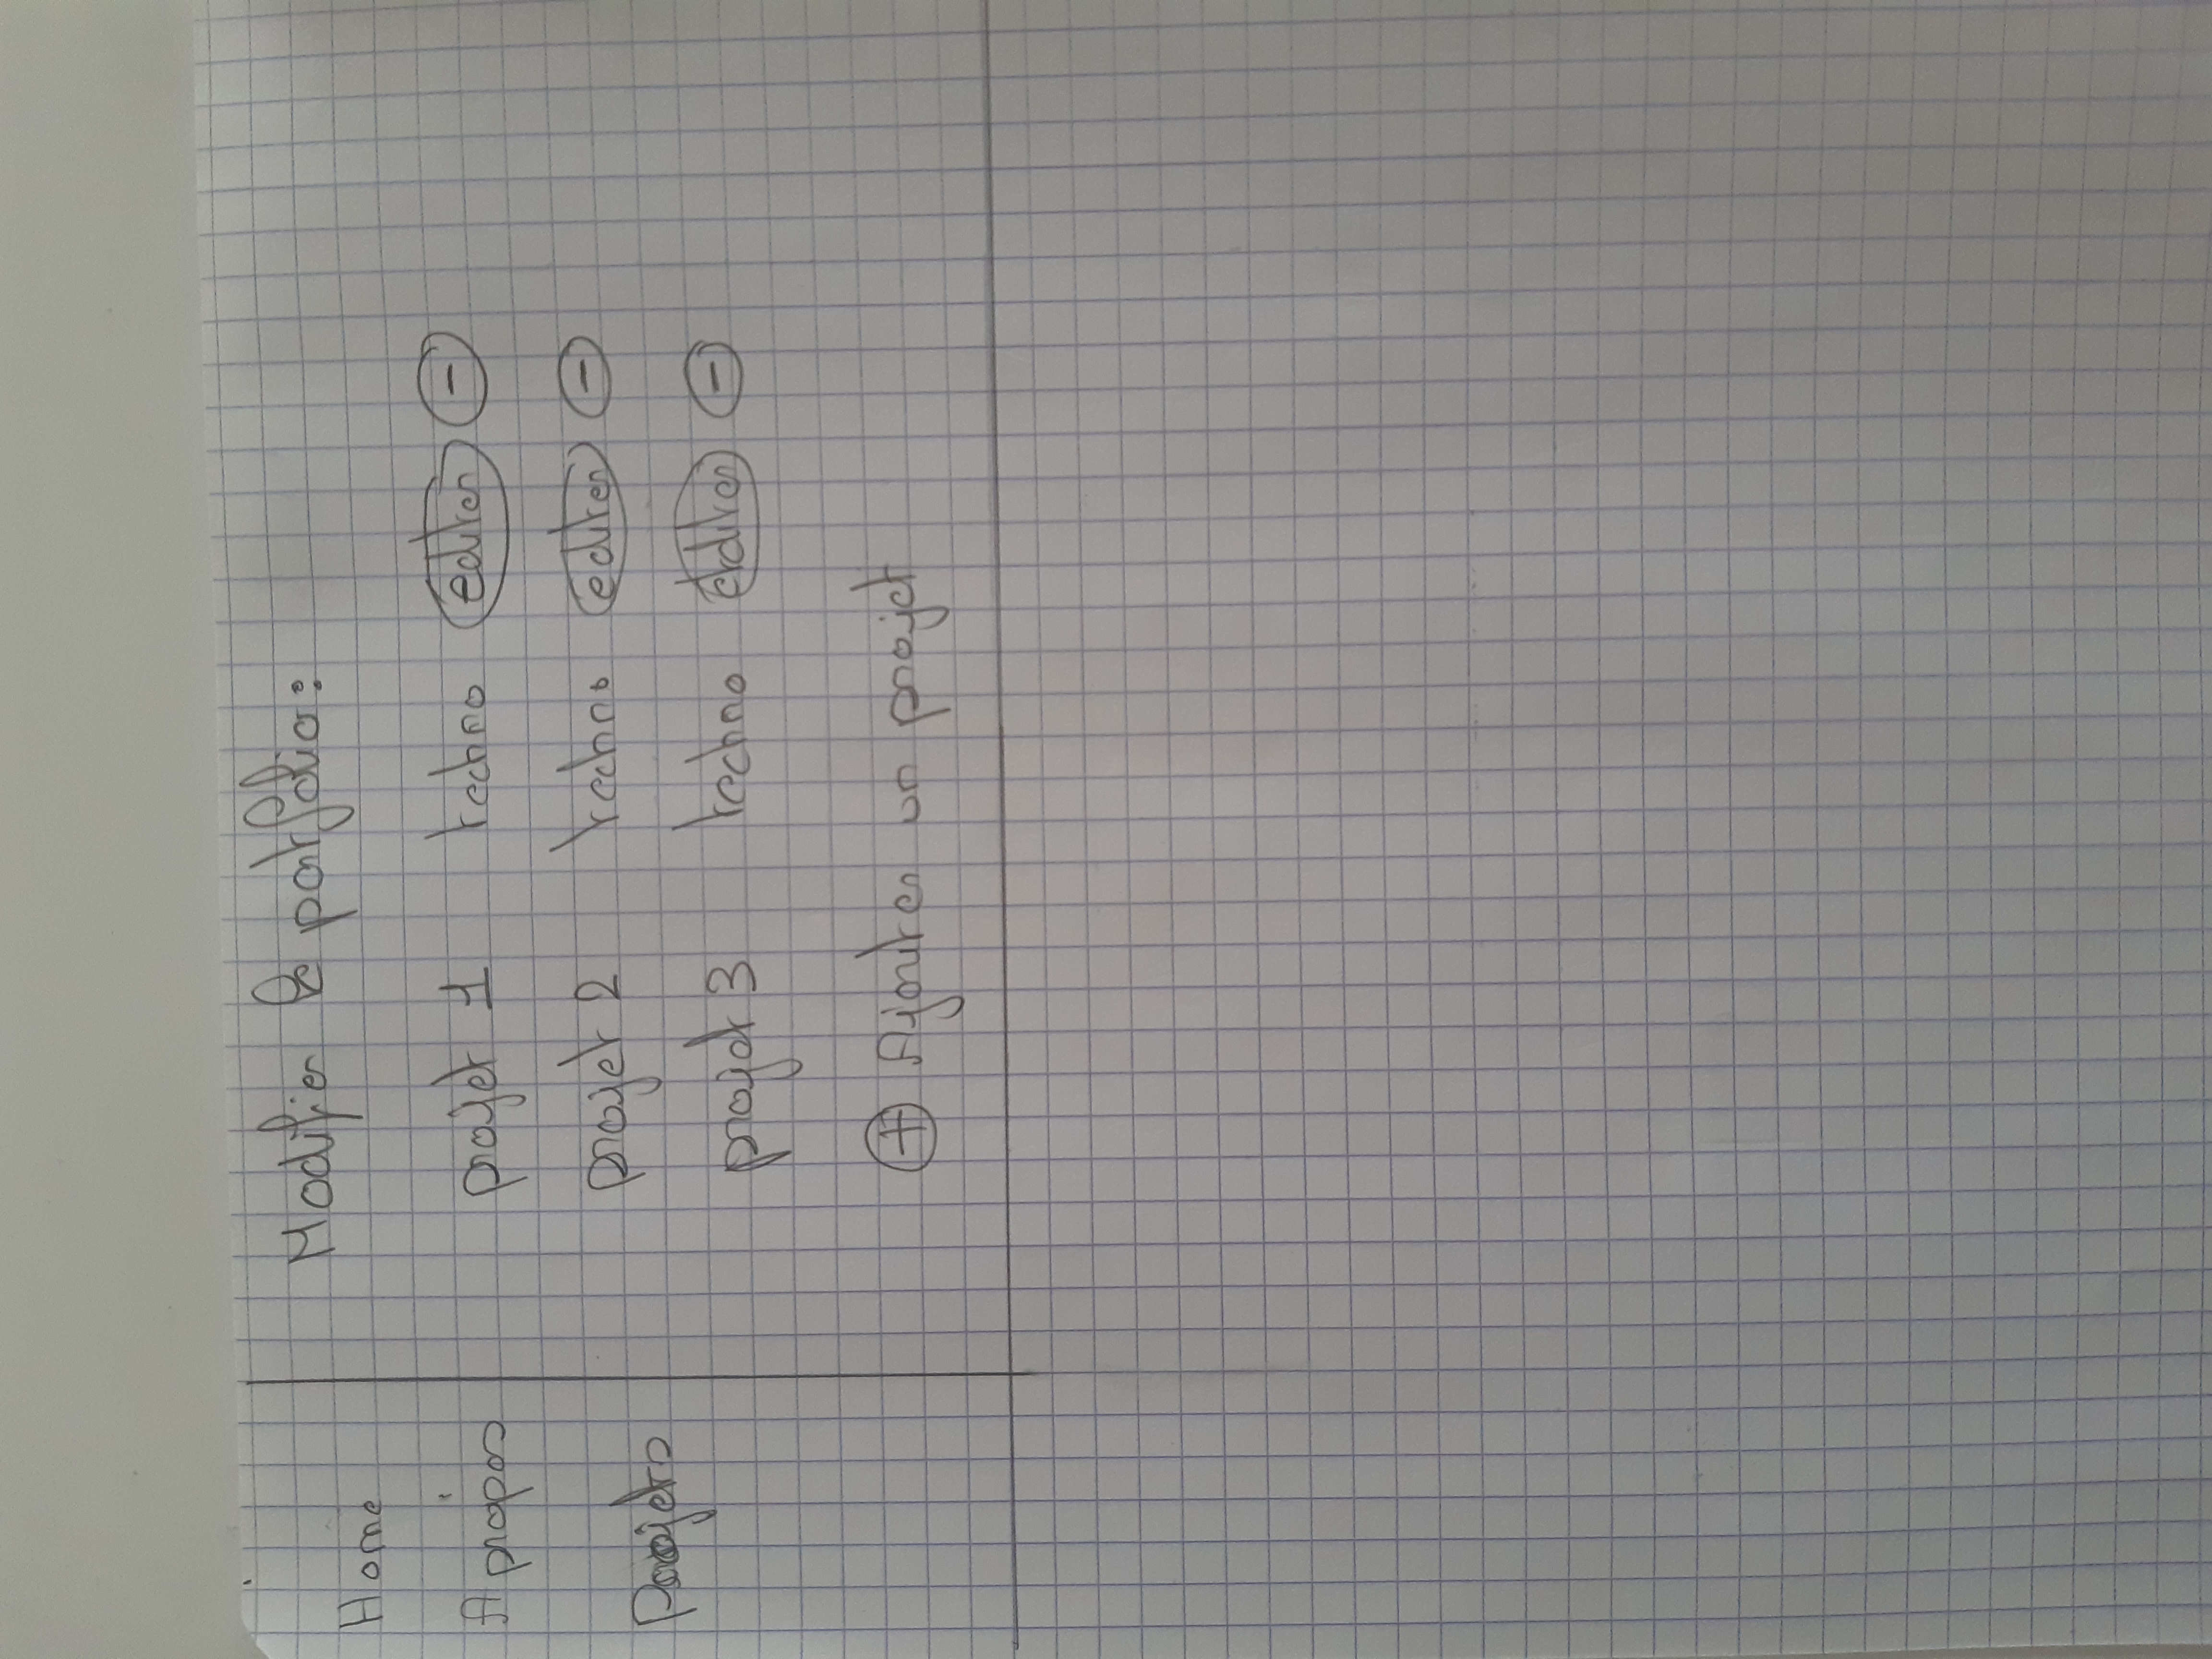 Home
A propos
Projets
Modifier le portfolio:
projet 1 techno editer -
projet 2 techno editer -
projet 3 techno editer -
+ Ajouter un projet